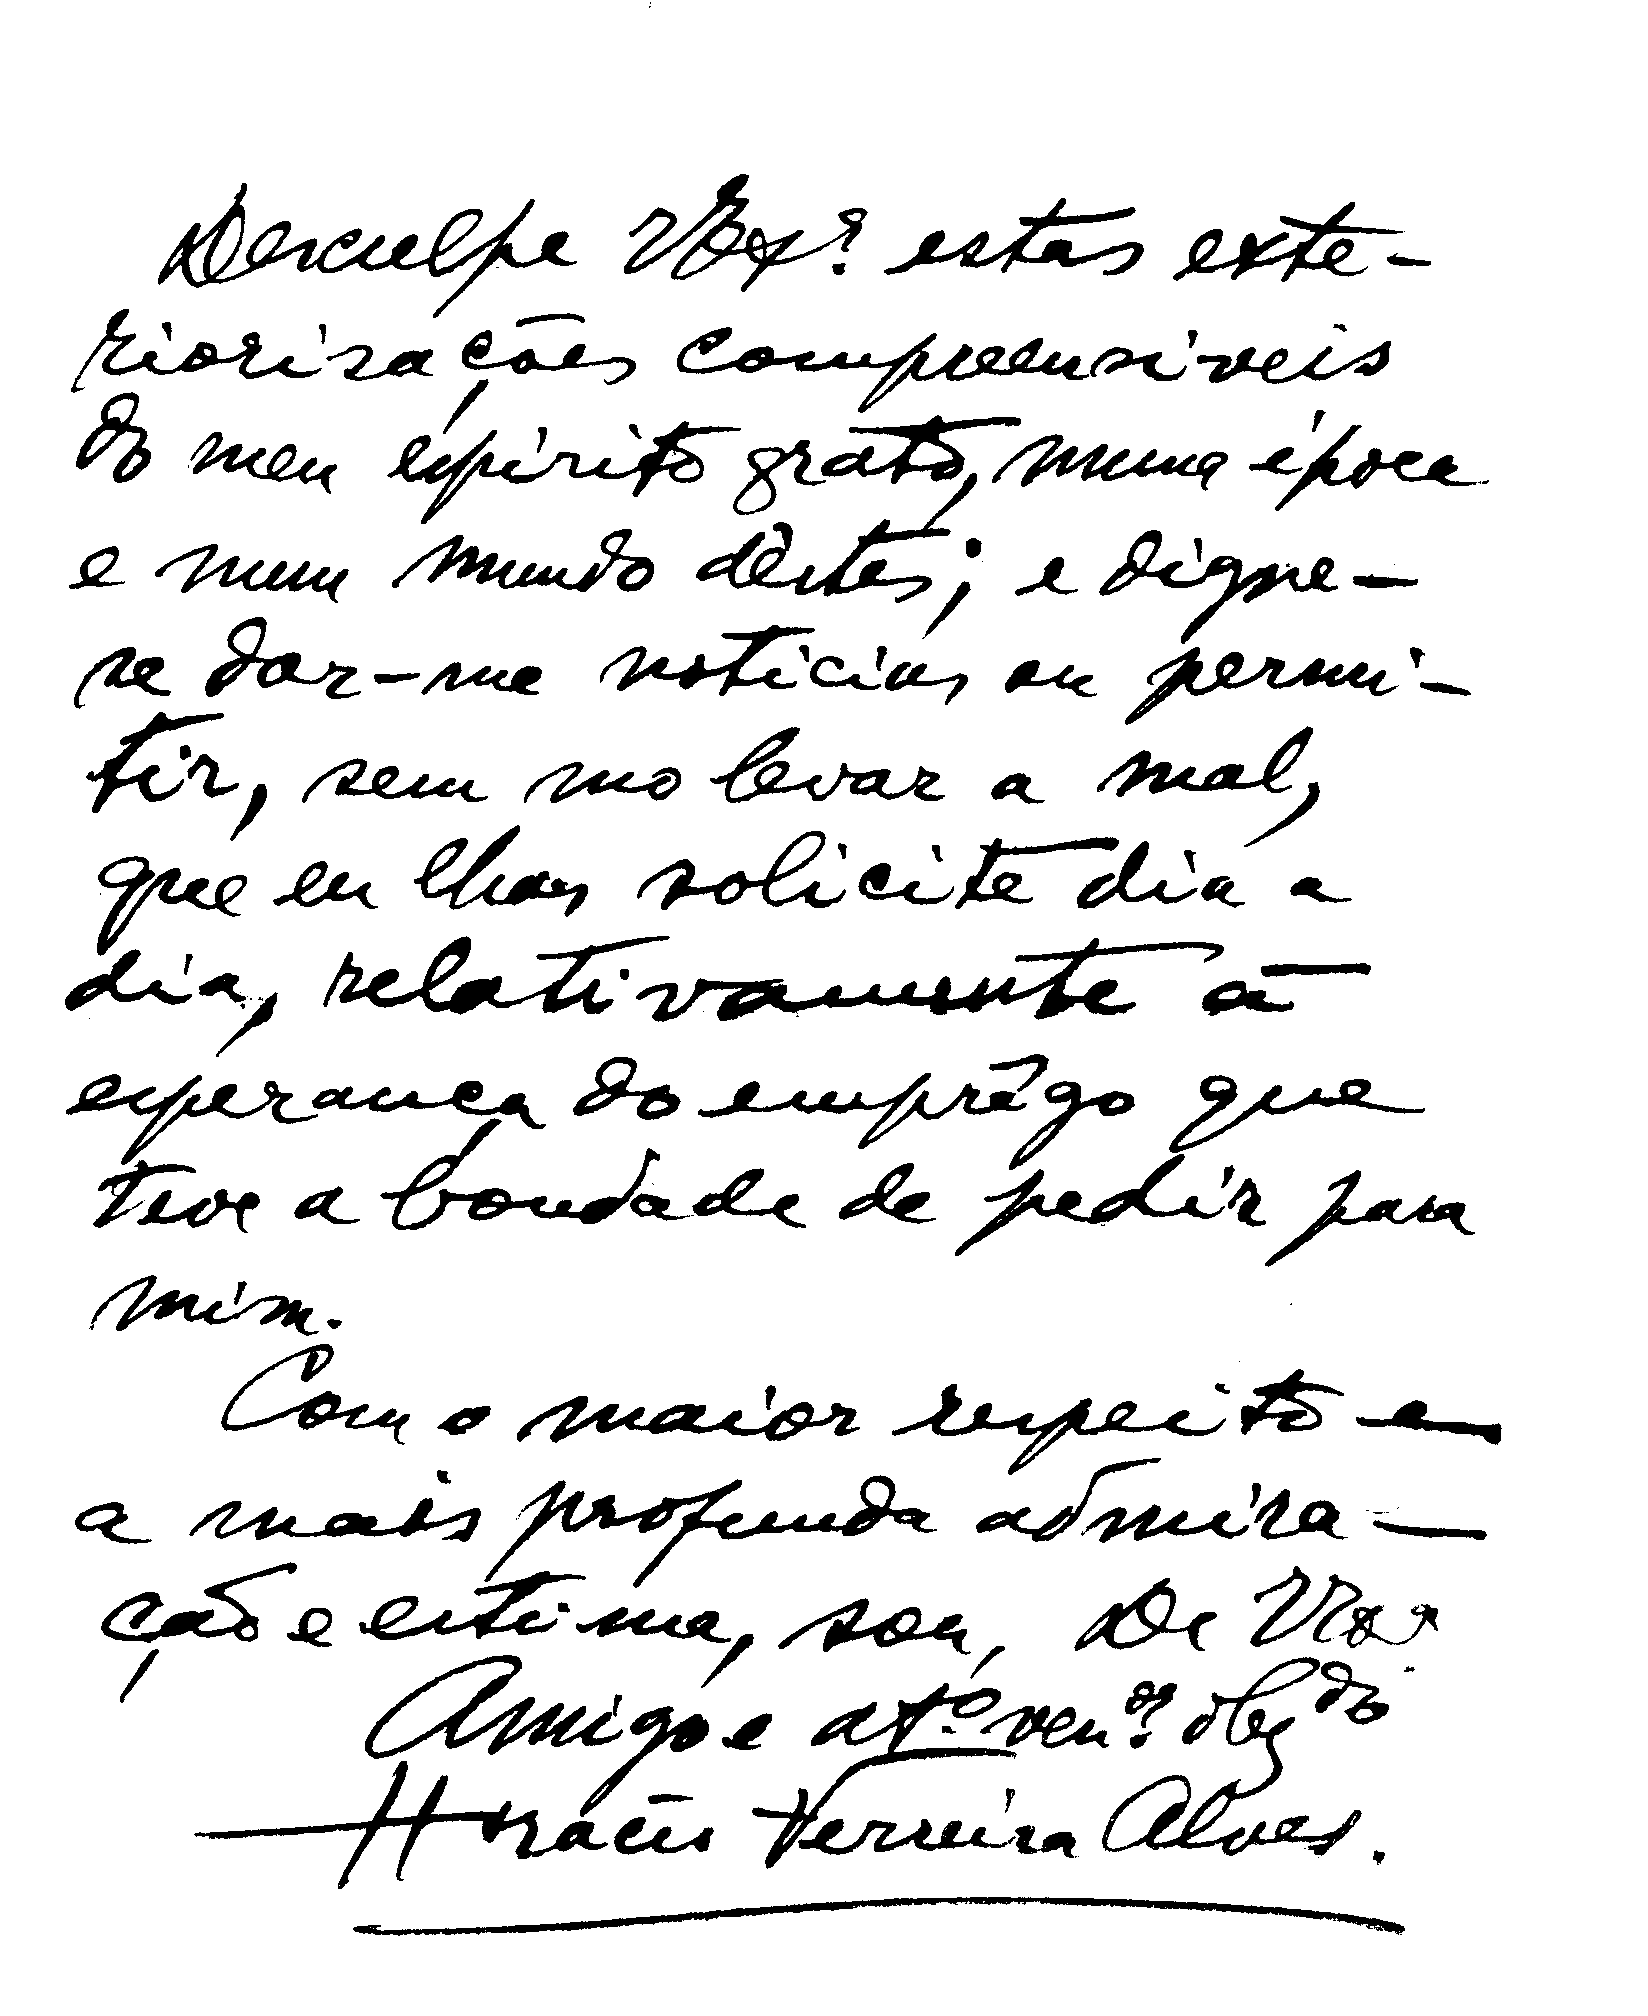 Desculpe VEx.ª estas exte-
riorisações compreensiveis
do meu espirito grato, numa época
e num mundo dêstes; e digne-
se dar-me noticias ou permi-
tir, sem mo levar a mal,
que eu lhas solicite dia a
dia, relativamente á
esperança do emprêgo que
teve a bondade de pedir para
mim.
Com o maior respeito e
a mais profunda admira-
ção e estima, sou, De VExª
Amigo e at.º ven.or obgdo
Horacio Ferreira Alves.